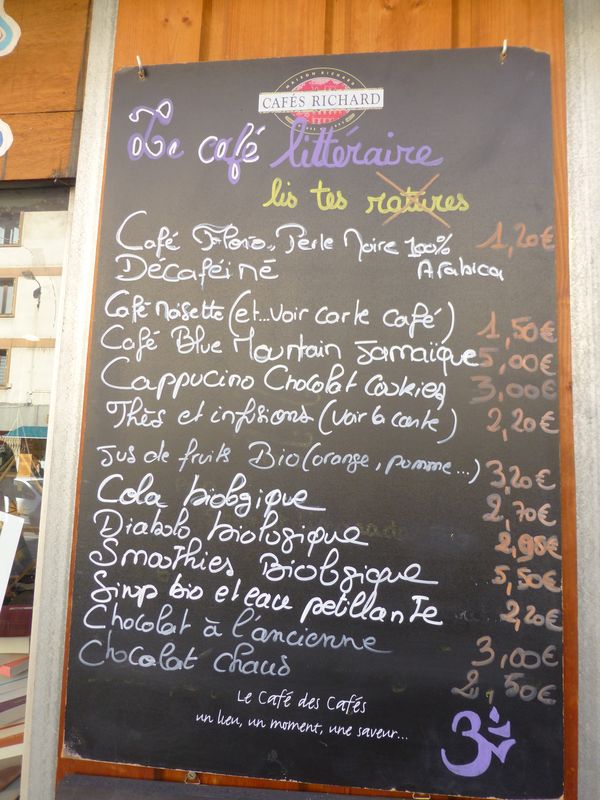 MAISON RICHARD
CAFÉS RICHARD
Le café littéraire
lis tes ratures
Café Florio, Perle Noire 100% 1,20€
Décaféiné Arabica
Café noisette (et...voir carte café) 1,50€
Café Blue Mountain Jamaïque 5,00€
Cappucino Chocolat Cookies 3,00€
Thés et infusions (voir la carte) 2,20€
Jus de fruits Bio (orange, pomme...) 3,20€
Cola biologique 2,70€
Diabolo biologique 2,95€
Smoothies Biologique 5,50€
Sirop bio et eau petillante 2,20€
Chocolat à l'ancienne 3,00€
Chocolat chaud 2,50€
Le Café des Cafés
un lieu, un moment, une saveur...